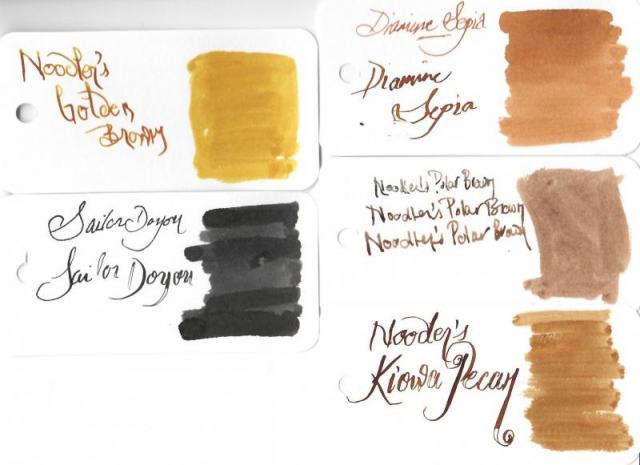 Noodler's
Golden
Brown
Sailor Doyou
Sailor Doyou
Diamine Sepia
Diamine
Sepia
Nooler's Polar Brown
Noodler's Polar Brown
Noodler's Polar Brown
Nooder's
Kiowa Pecan